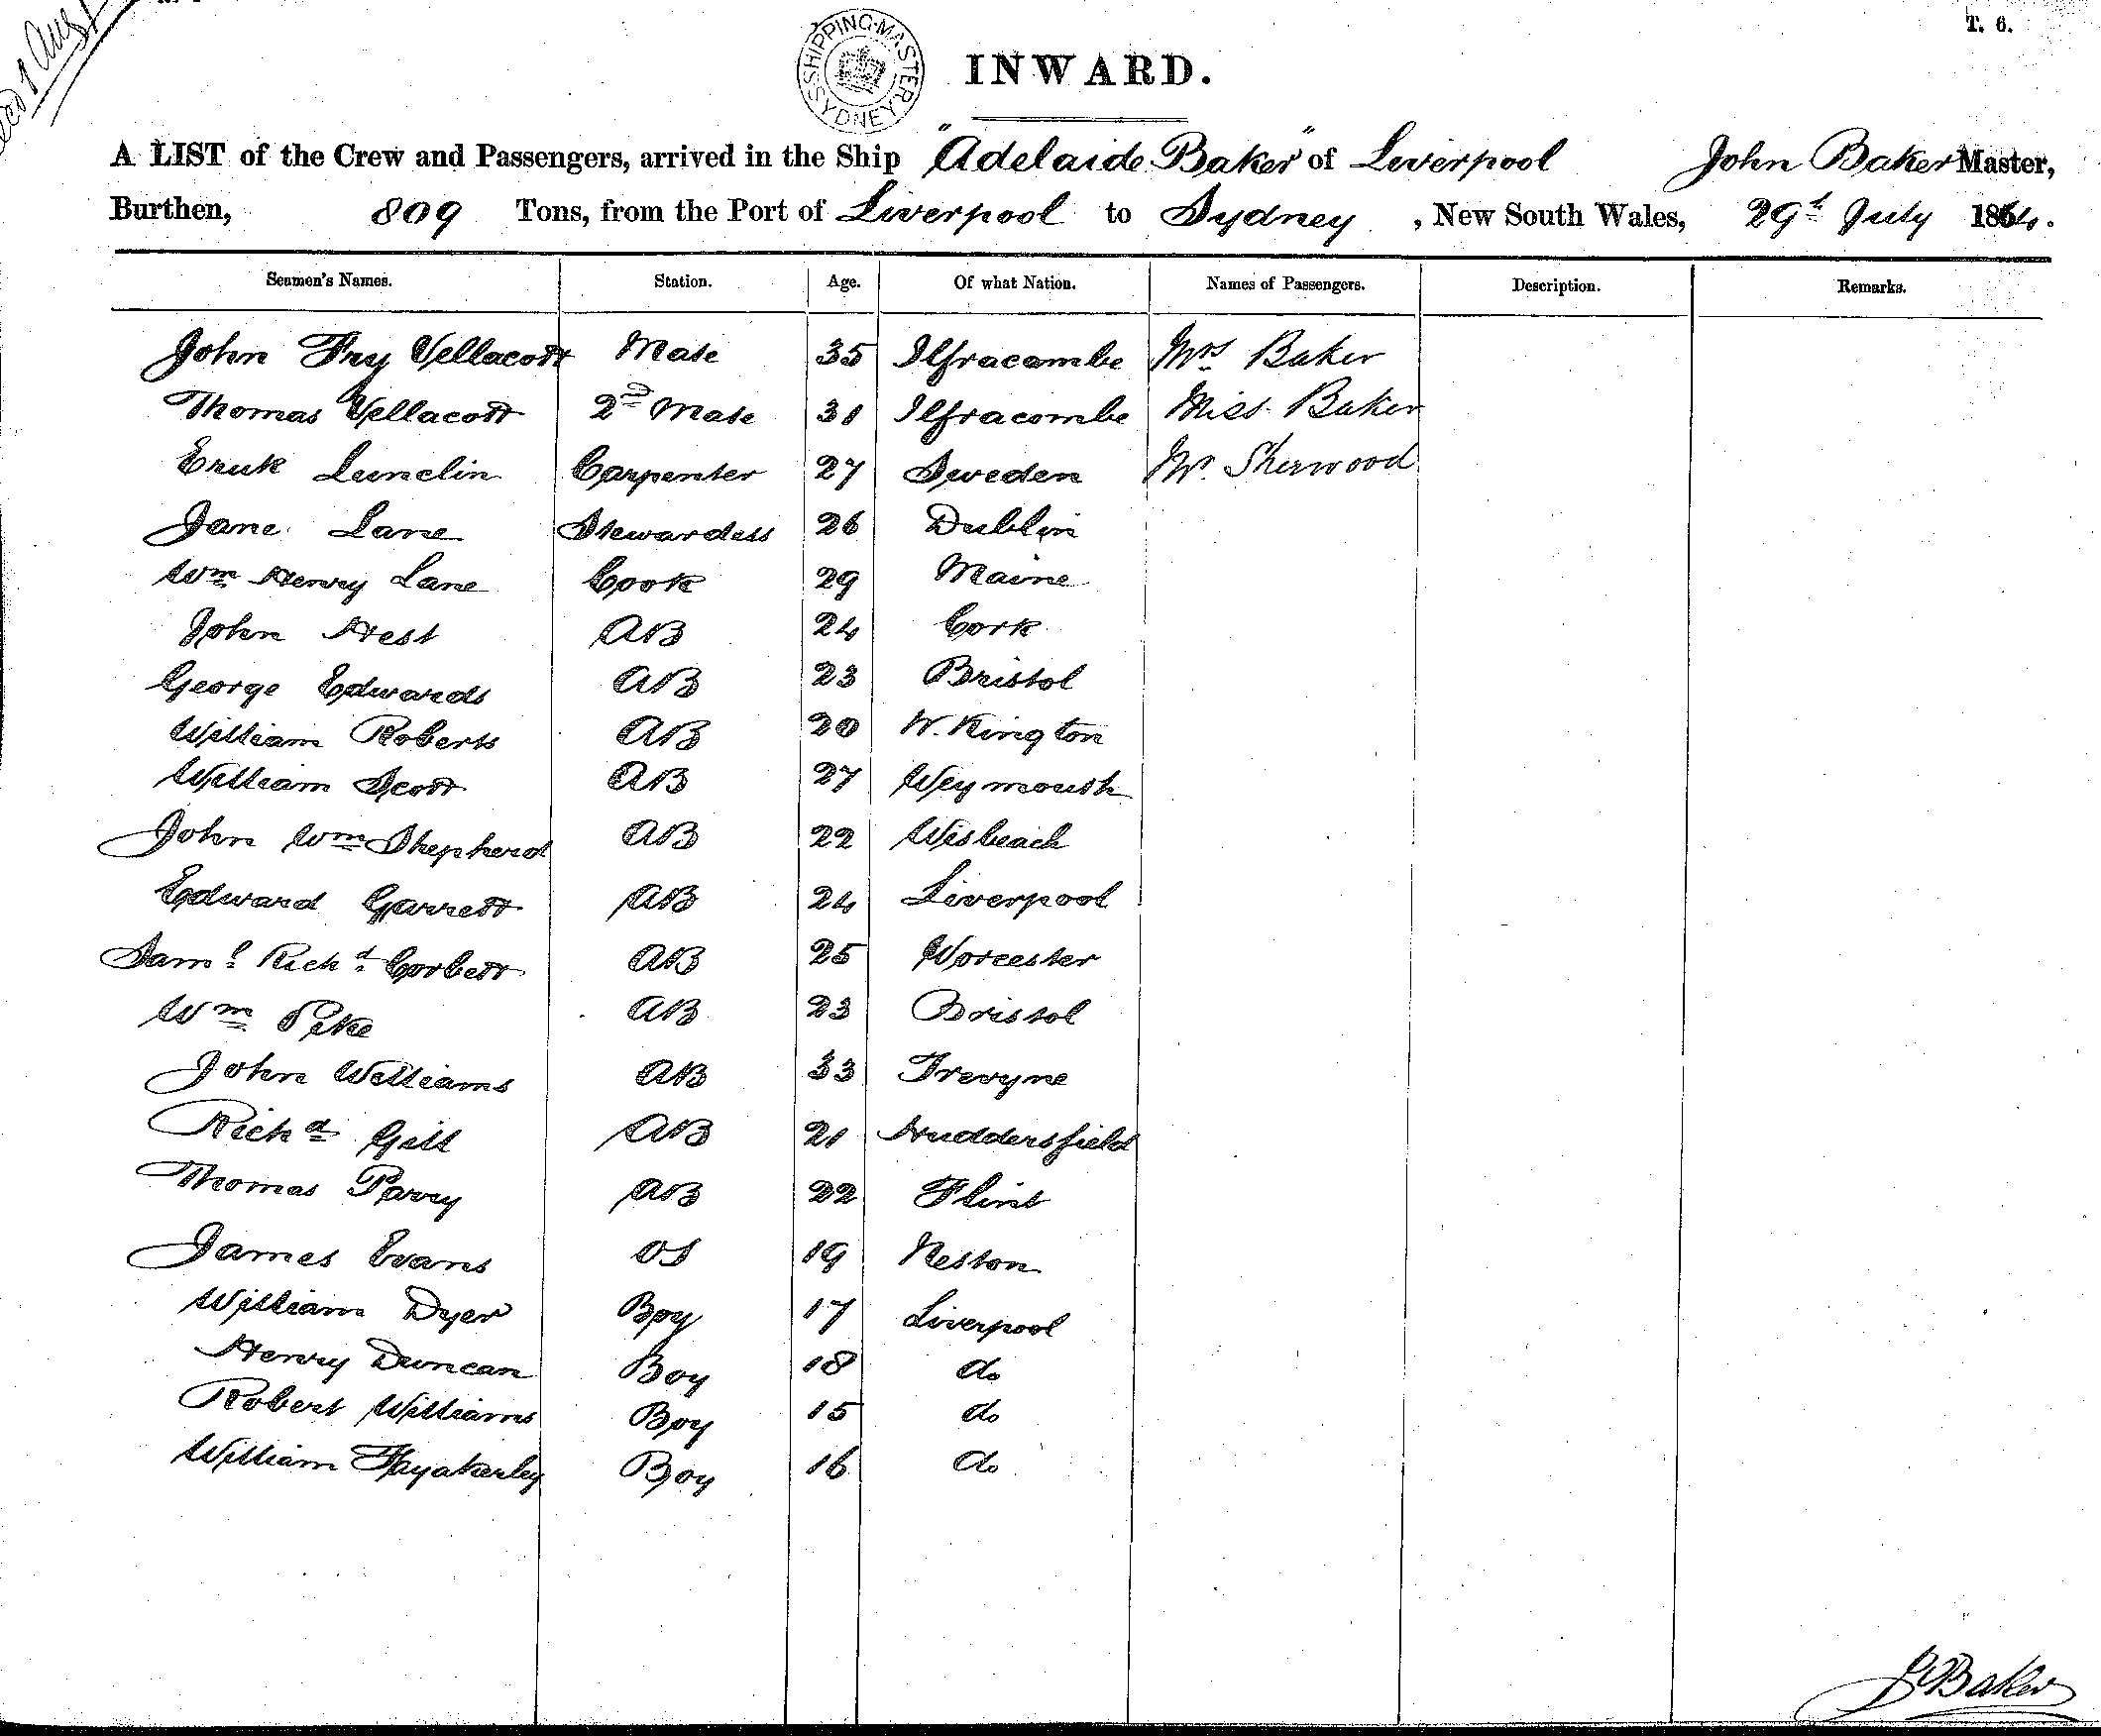 T. 6.
SHIPPING MASTER SYDNEY
INWARD.
A LIST of the Crew and Passengers, arrived in the Ship "Adelaide Baker" of Liverpool John Baker Master,
Burthen, 809 Tons, from the Port of Liverpool to Sydney, New South Wales, 29th July 1864.
Seamen's Names. Station. Age. Of what Nation. Names of Passengers. Description. Remarks.
John Fry Vellacott Mate 35 Ilfracombe Mrs Baker
Thomas Vellacott 2nd Mate 31 Ilfracombe Miss Baker
Erick Lundin Carpenter 27 Sweden Mr. Sherwood
Jane Lane Stewardess 26 Dublin
Wm Henry Lane Cook 29 Maine
John Hest AB 24 Cork
George Edwards AB 23 Bristol
William Roberts AB 20 W. Kington
William Scott AB 27 Weymouth
John Wm Shepherd AB 22 Wisbeach
Edward Garrett AB 24 Liverpool
Saml Richd Corbett AB 25 Worcester
Wm Pike AB 23 Bristol
John Williams AB 33 Trevyne
Richd Gill AB 21 Huddersfield
Thomas Parry AB 22 Flint
James Evans OS 19 Neston
William Dyer Boy 17 Liverpool
Henry Duncan Boy 18 do
Robert Williams Boy 15 do
William Boy 16 do
J Baker